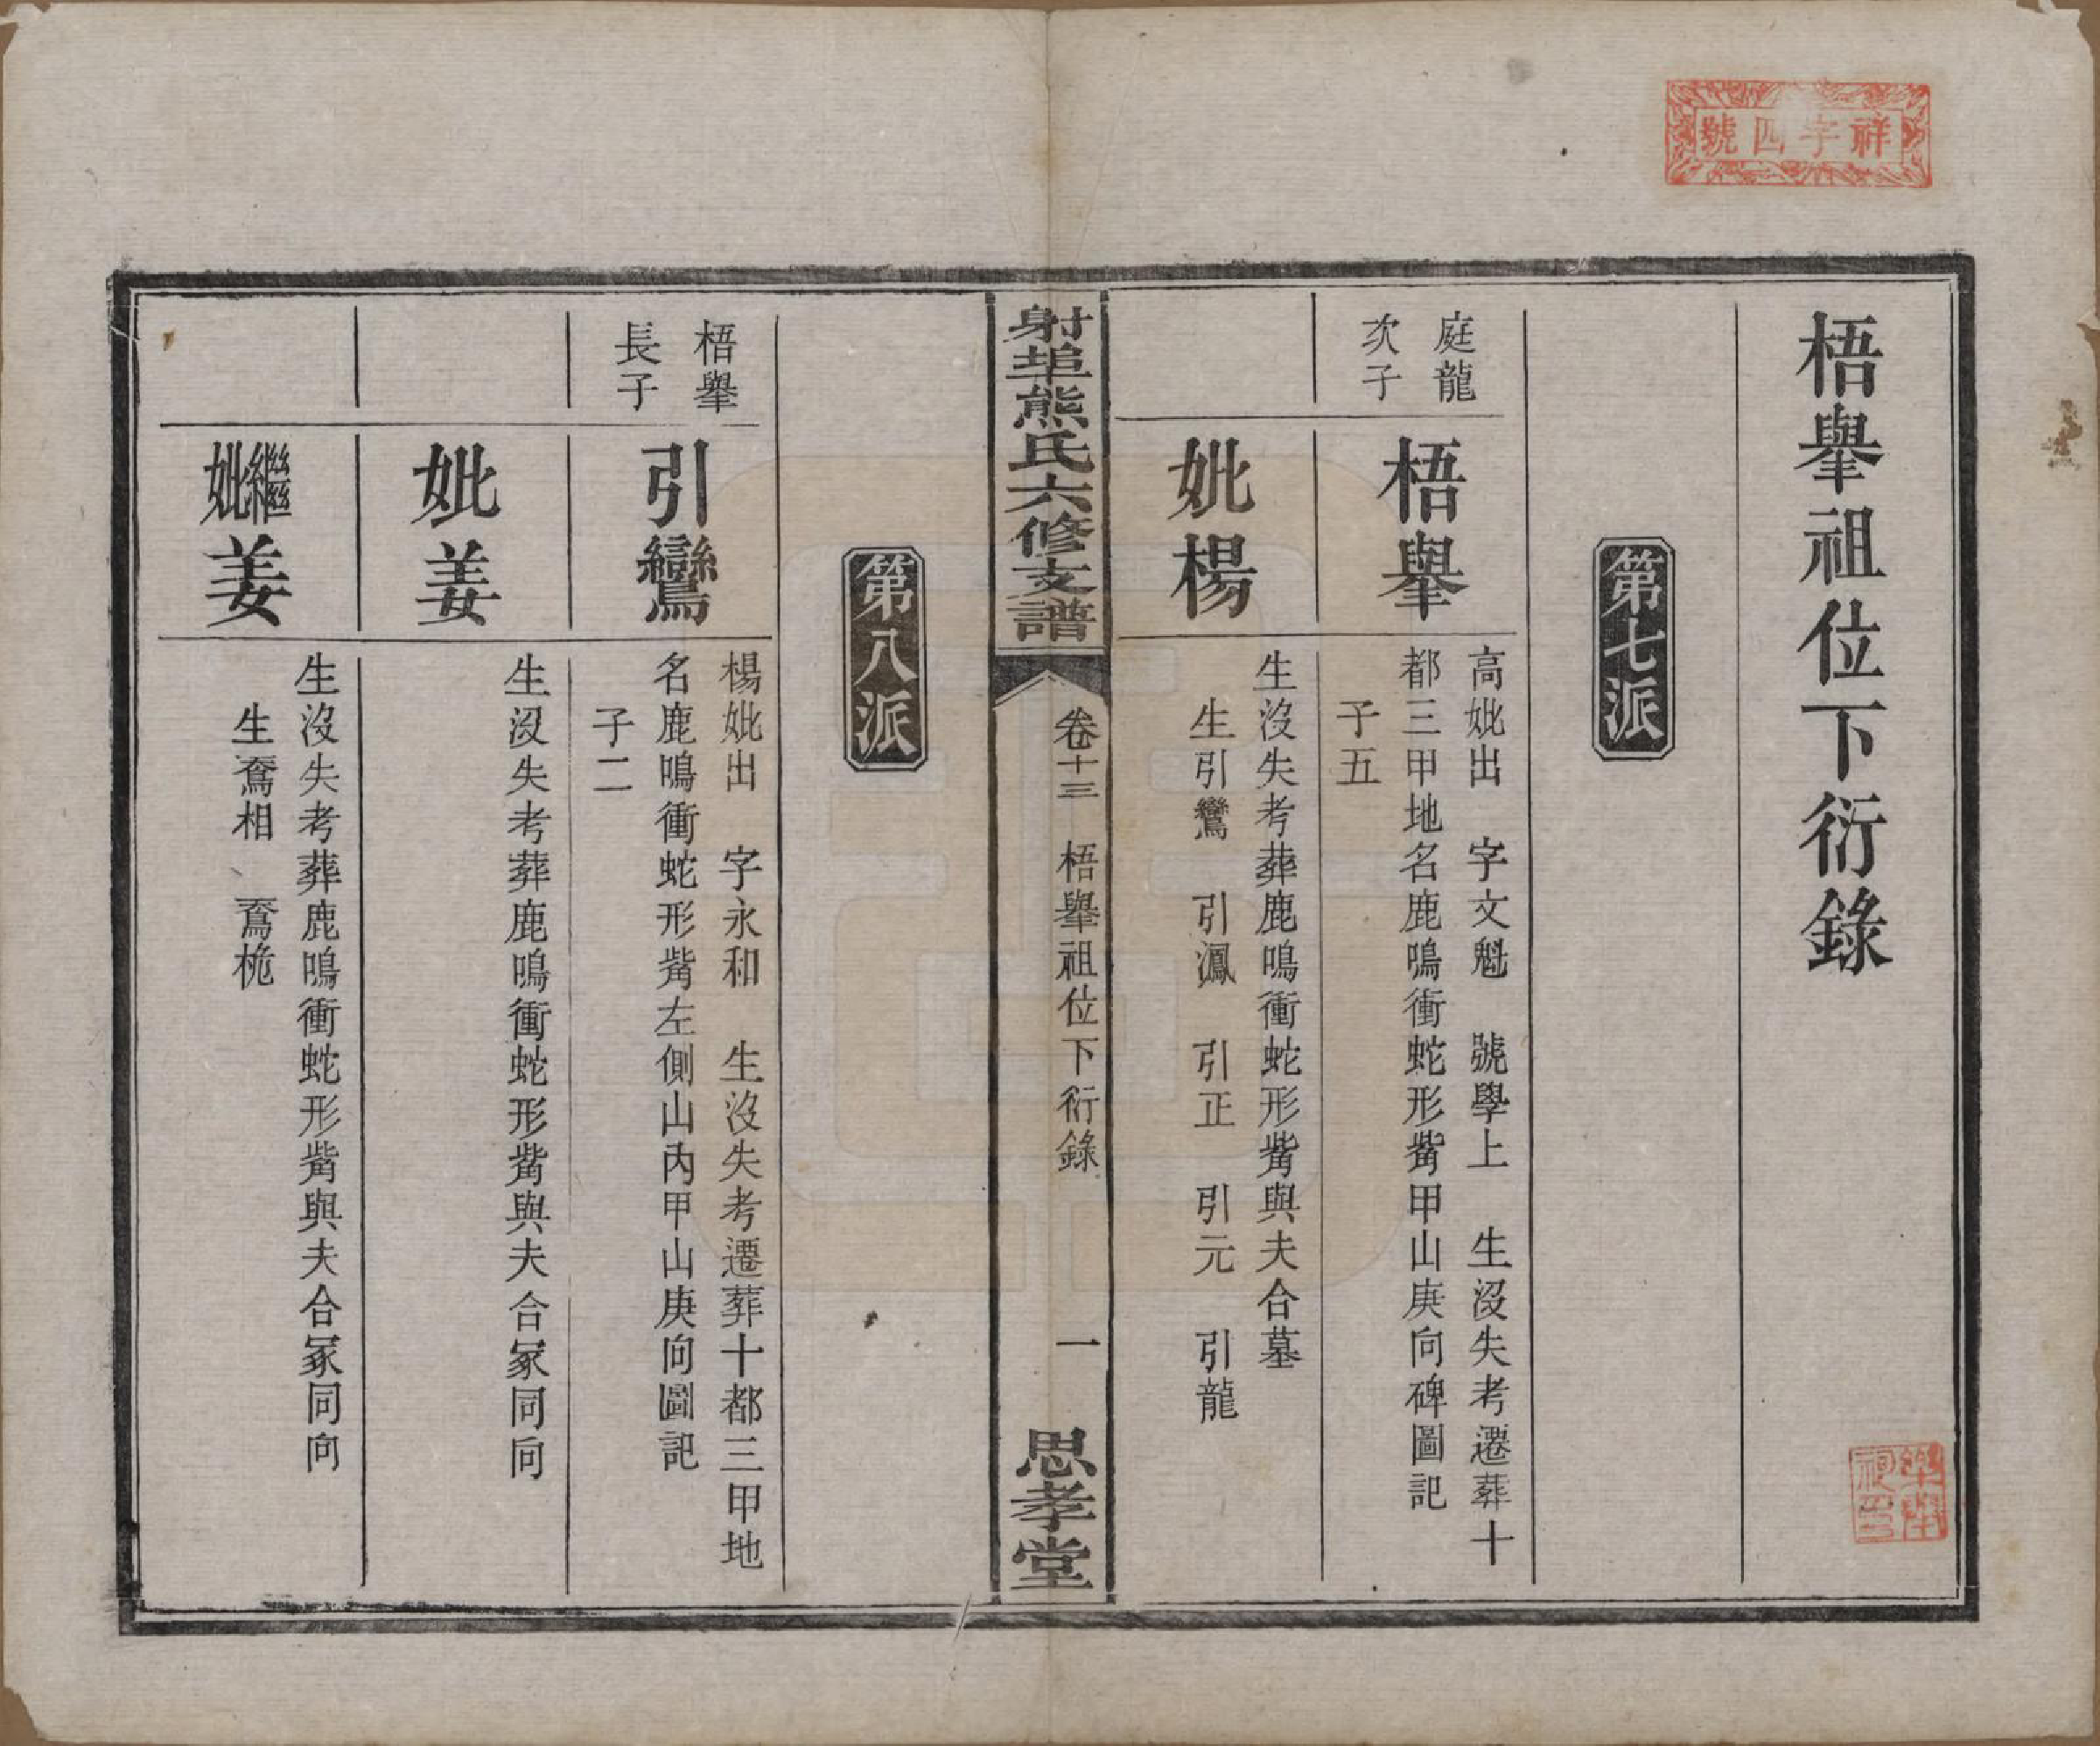 祥字四號
梧舉祖位下衍錄
第七派
庭龍
次子
梧舉
高妣出　字文魁　號學上　生沒失考遷葬十
都三甲地名鹿鳴衝蛇形觜甲山庚向碑圖記
子五
妣楊
生沒失考葬鹿鳴衝蛇形觜與夫合墓
生引鸞　引鳳　引正　引元　引龍
射埠熊氏六修支譜
卷十三　梧舉祖位下衍錄　一
思孝堂
第八派
梧舉
長子
引鸞
楊妣出　字永和　生沒失考遷葬十都三甲地
名鹿鳴衝蛇形觜左側山內甲山庚向圖記
子二
妣姜
生沒失考葬鹿鳴衝蛇形觜與夫合冢同向
繼妣姜
生沒失考葬鹿鳴衝蛇形觜與夫合冢同向
生鴌相　鴌桅